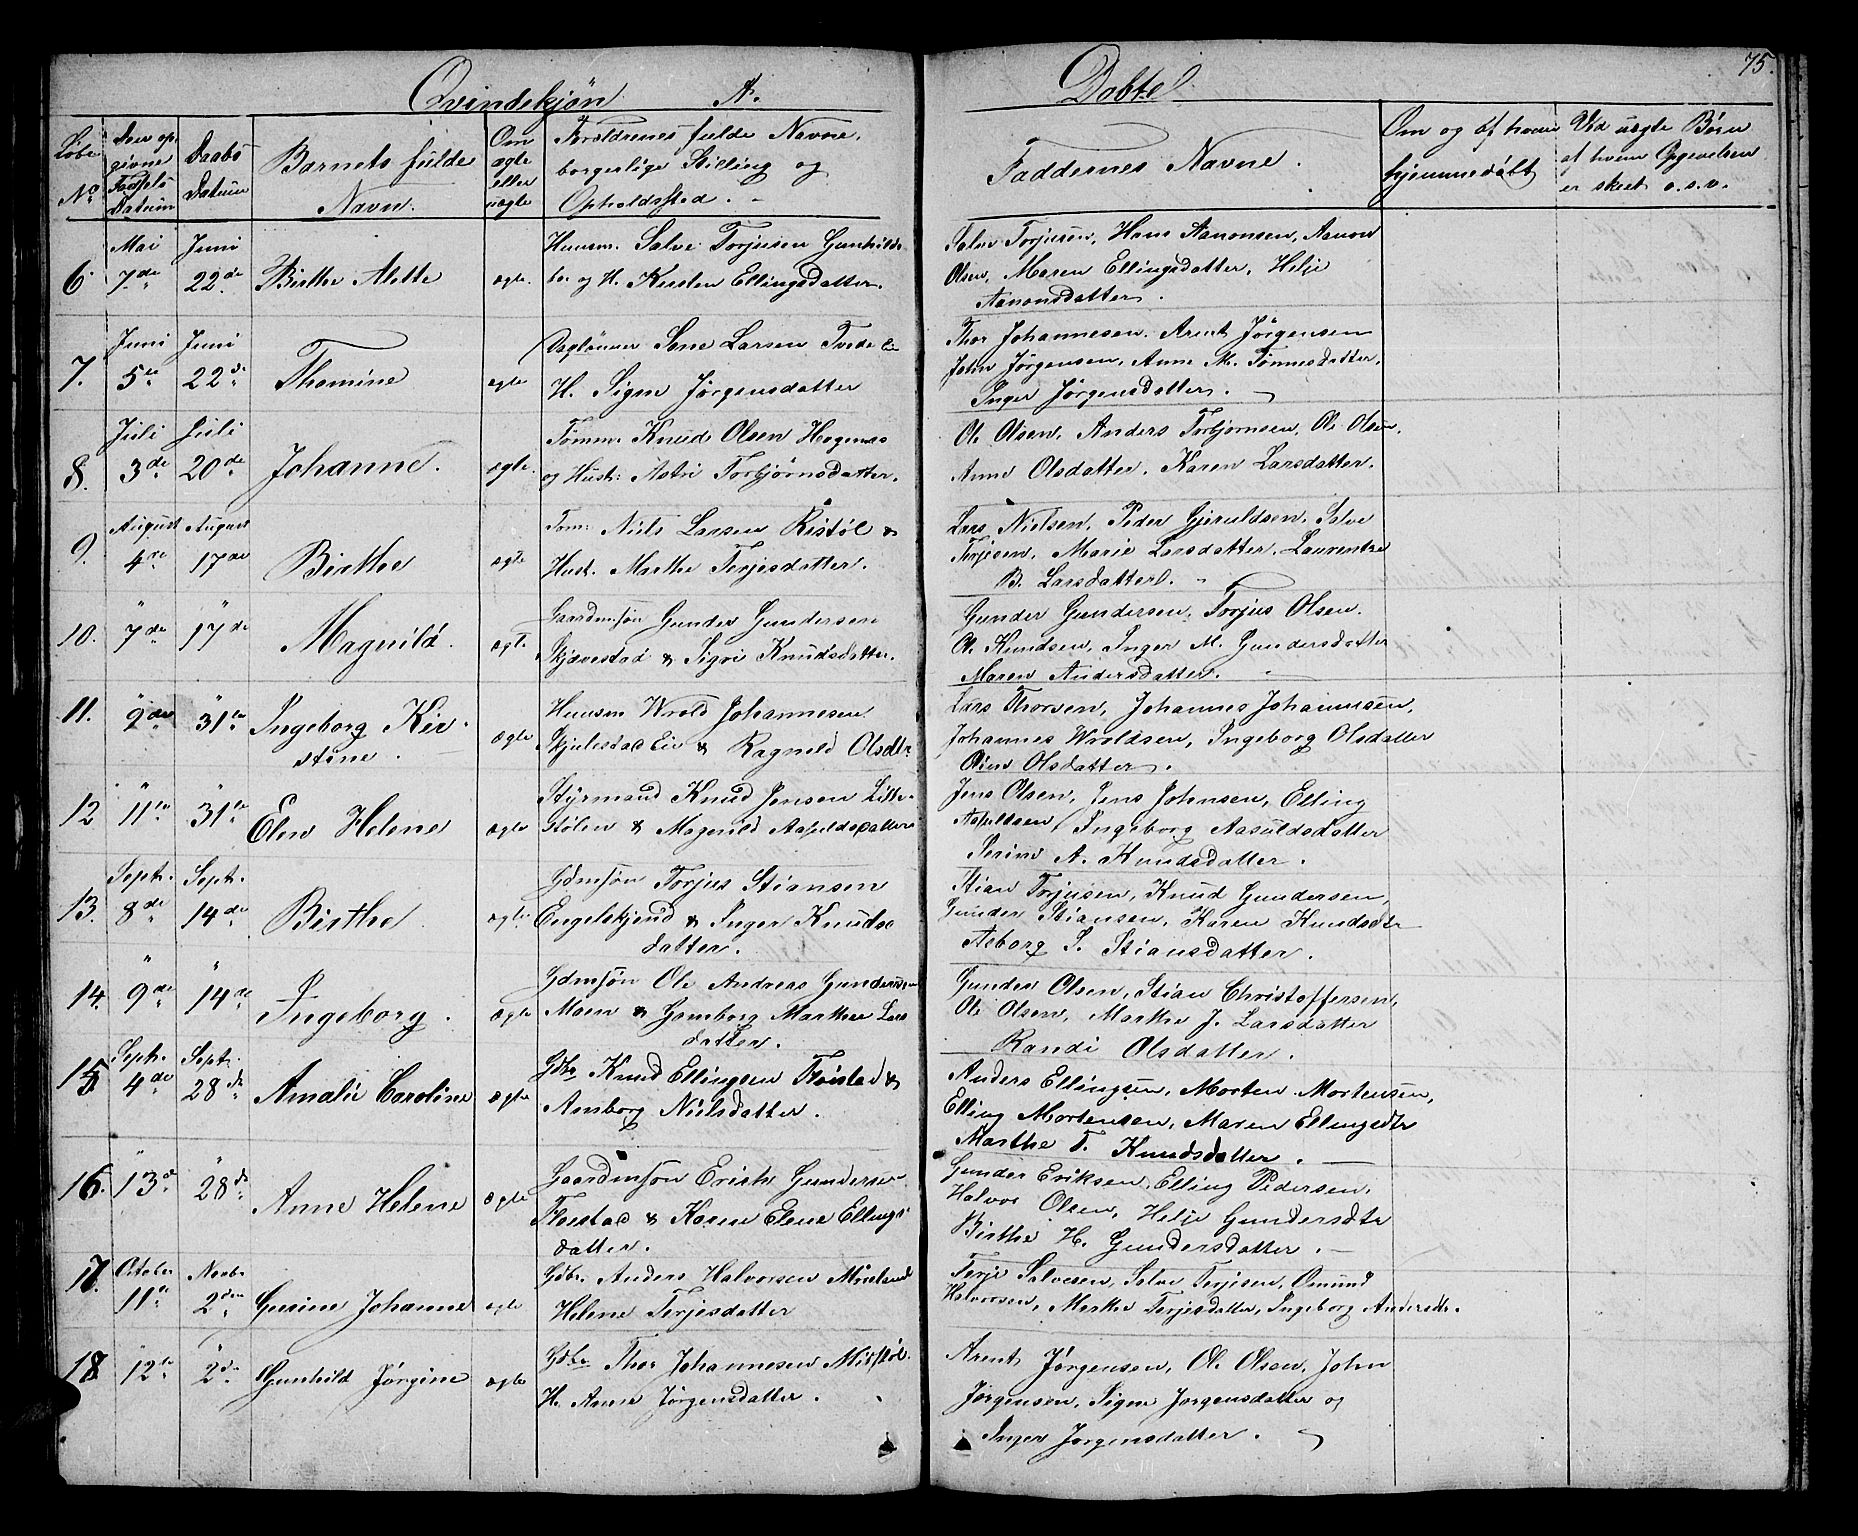 Qvindekjøn A. Døbte. 75.
Løbe No. Den opgivne Fødsels Datum Daabs Datum Barnets fulde Navn. Om ægte eller uægte Forældrenes fulde Navne, borgerlige Stilling og Opholdssted. Faddernes Navne. Om og af hvem hjemmedøbt Ved uægte Børn af hvem Opgivelsen er skeet o.s.v.
6. Mai 7de Juni 22de Birthe Alette ægte. Huusm. Salve Torjusen Gunhilds-
bo. og H. Kirsten Ellingsdatter.
Salve Torjusen, Hans Aanonsen, Aanon
Olsen, Maren Ellingsdatter, Helje
Aanonsdatter.
7. Juni 5te Juni 22de Thomine ægte Dagleiner Sone Larsen Tvede Eie
H. Signe Jørgensdatter
Thor Johannesen. Arent Jørgensen
John Jørgensen, Anne M. Tønnesdatter,
Inger Jørgensdatter.
8. Juli 3de Juli 20de Johanne. ægte. Tømm. Knud Olsen
og Hust: Astri Torbjørnsdatter.
Ole Olsen, Anders Torbjørnsen, Ole Olsen,
Anne Olsdatter, Karen Larsdatter.
9. August 4de August 17de Birthe ægte Tom: Niels Larsen Ristøl &
Hust. Marthe Terjesdatter.
Lars Nielsen, Peder Gjeruldsen, Salve
Terjesen, Marie Larsdatter, Laurentze
B. Larsdatter.
10. " 7de " 17de Magnild. ægte Gaardmsøn Gunder Gundersen
Skjævestad & Sigri Knudsdatter.
Gunder Gundersen, Torjus Olsen.
Ole Knudsen, Inger M. Gundersdatter
Maren Andersdatter.
11. " 9de " 31te Ingeborg Kir-
stine. ægte Huusm Wrold Johannesen
Skjulestad Eie & Ragnild Olsdtr
Lars Thorsen, Johannes Johannesen,
Johannes Wroldsen, Ingeborg Olsdatter
Olsdatter.
12 " 11te " 31te Elen Helene ægte Styrmand Knud Jensen Lille-
Stølen & Magnild Asuldsdatter
Jens Olsen, Jens Johnsen, Elling
Asuldsen, Ingeborg Aasuldsdatter
Serine A. Knudsdatter.
13. Septr. 8de Septr. 14de Birthe ægte. Gdmsøn Torjus Stiansen
Engelskjend & Inger Knuds-
datter.
Stian Torjusen, Knud Gundersen,
Gunder Stiansen, Karen Knudsdtr
Asborg S. Stiansdatter.
14. " 9de " 14de Ingeborg. ægte Gdmsøn Ole Andreas Gundersen
Moen & Gomborg Marthea Lars
datter.
Gunder Olsen, Stian Christoffersen,
Ole Olsen, Marthe J. Larsdatter
Randi Olsdatter.
15 Septr. 4de Septr. 28de Amalie Caroline ægte Gdbr Knud Ellingsen Fløistad &
Amborg Nielsdatter.
Anders Ellingsen, Morten Mortensen,
Elling Mortensen, Maren Ellingsdtr
Marthe T. Knudsdatter.
16. " 13de " 28de Anne Helene ægte Gaardmsøn Erich Gundersen
Fløistad & Karen Elene Ellings
datter.
Gunder Eriksen, Elling Pedersen,
Halvor Olsen, Helje Gundersdtr
Birthe H. Gundersdatter.
17. October 11te Novbr. 2den Gurine Johanne ægte Gdbr. Anders Halvorsen Mjeland
Helene Terjesdatter
Terje Salvesen, Salve Terjesen, Omund
Halvorsen, Marthe Terjesdatter, Ingeborg Andersdtr.
18 " 12te " 2den Gunhild Jørgine ægte Gdbr Thor Johannesen Midtbøl.
H. Anne Jørgensdatter.
Arent Jørgensen, Ole Olsen, John
Jørgensen, Signe Jørgensdatter og
Inger Jørgensdatter.